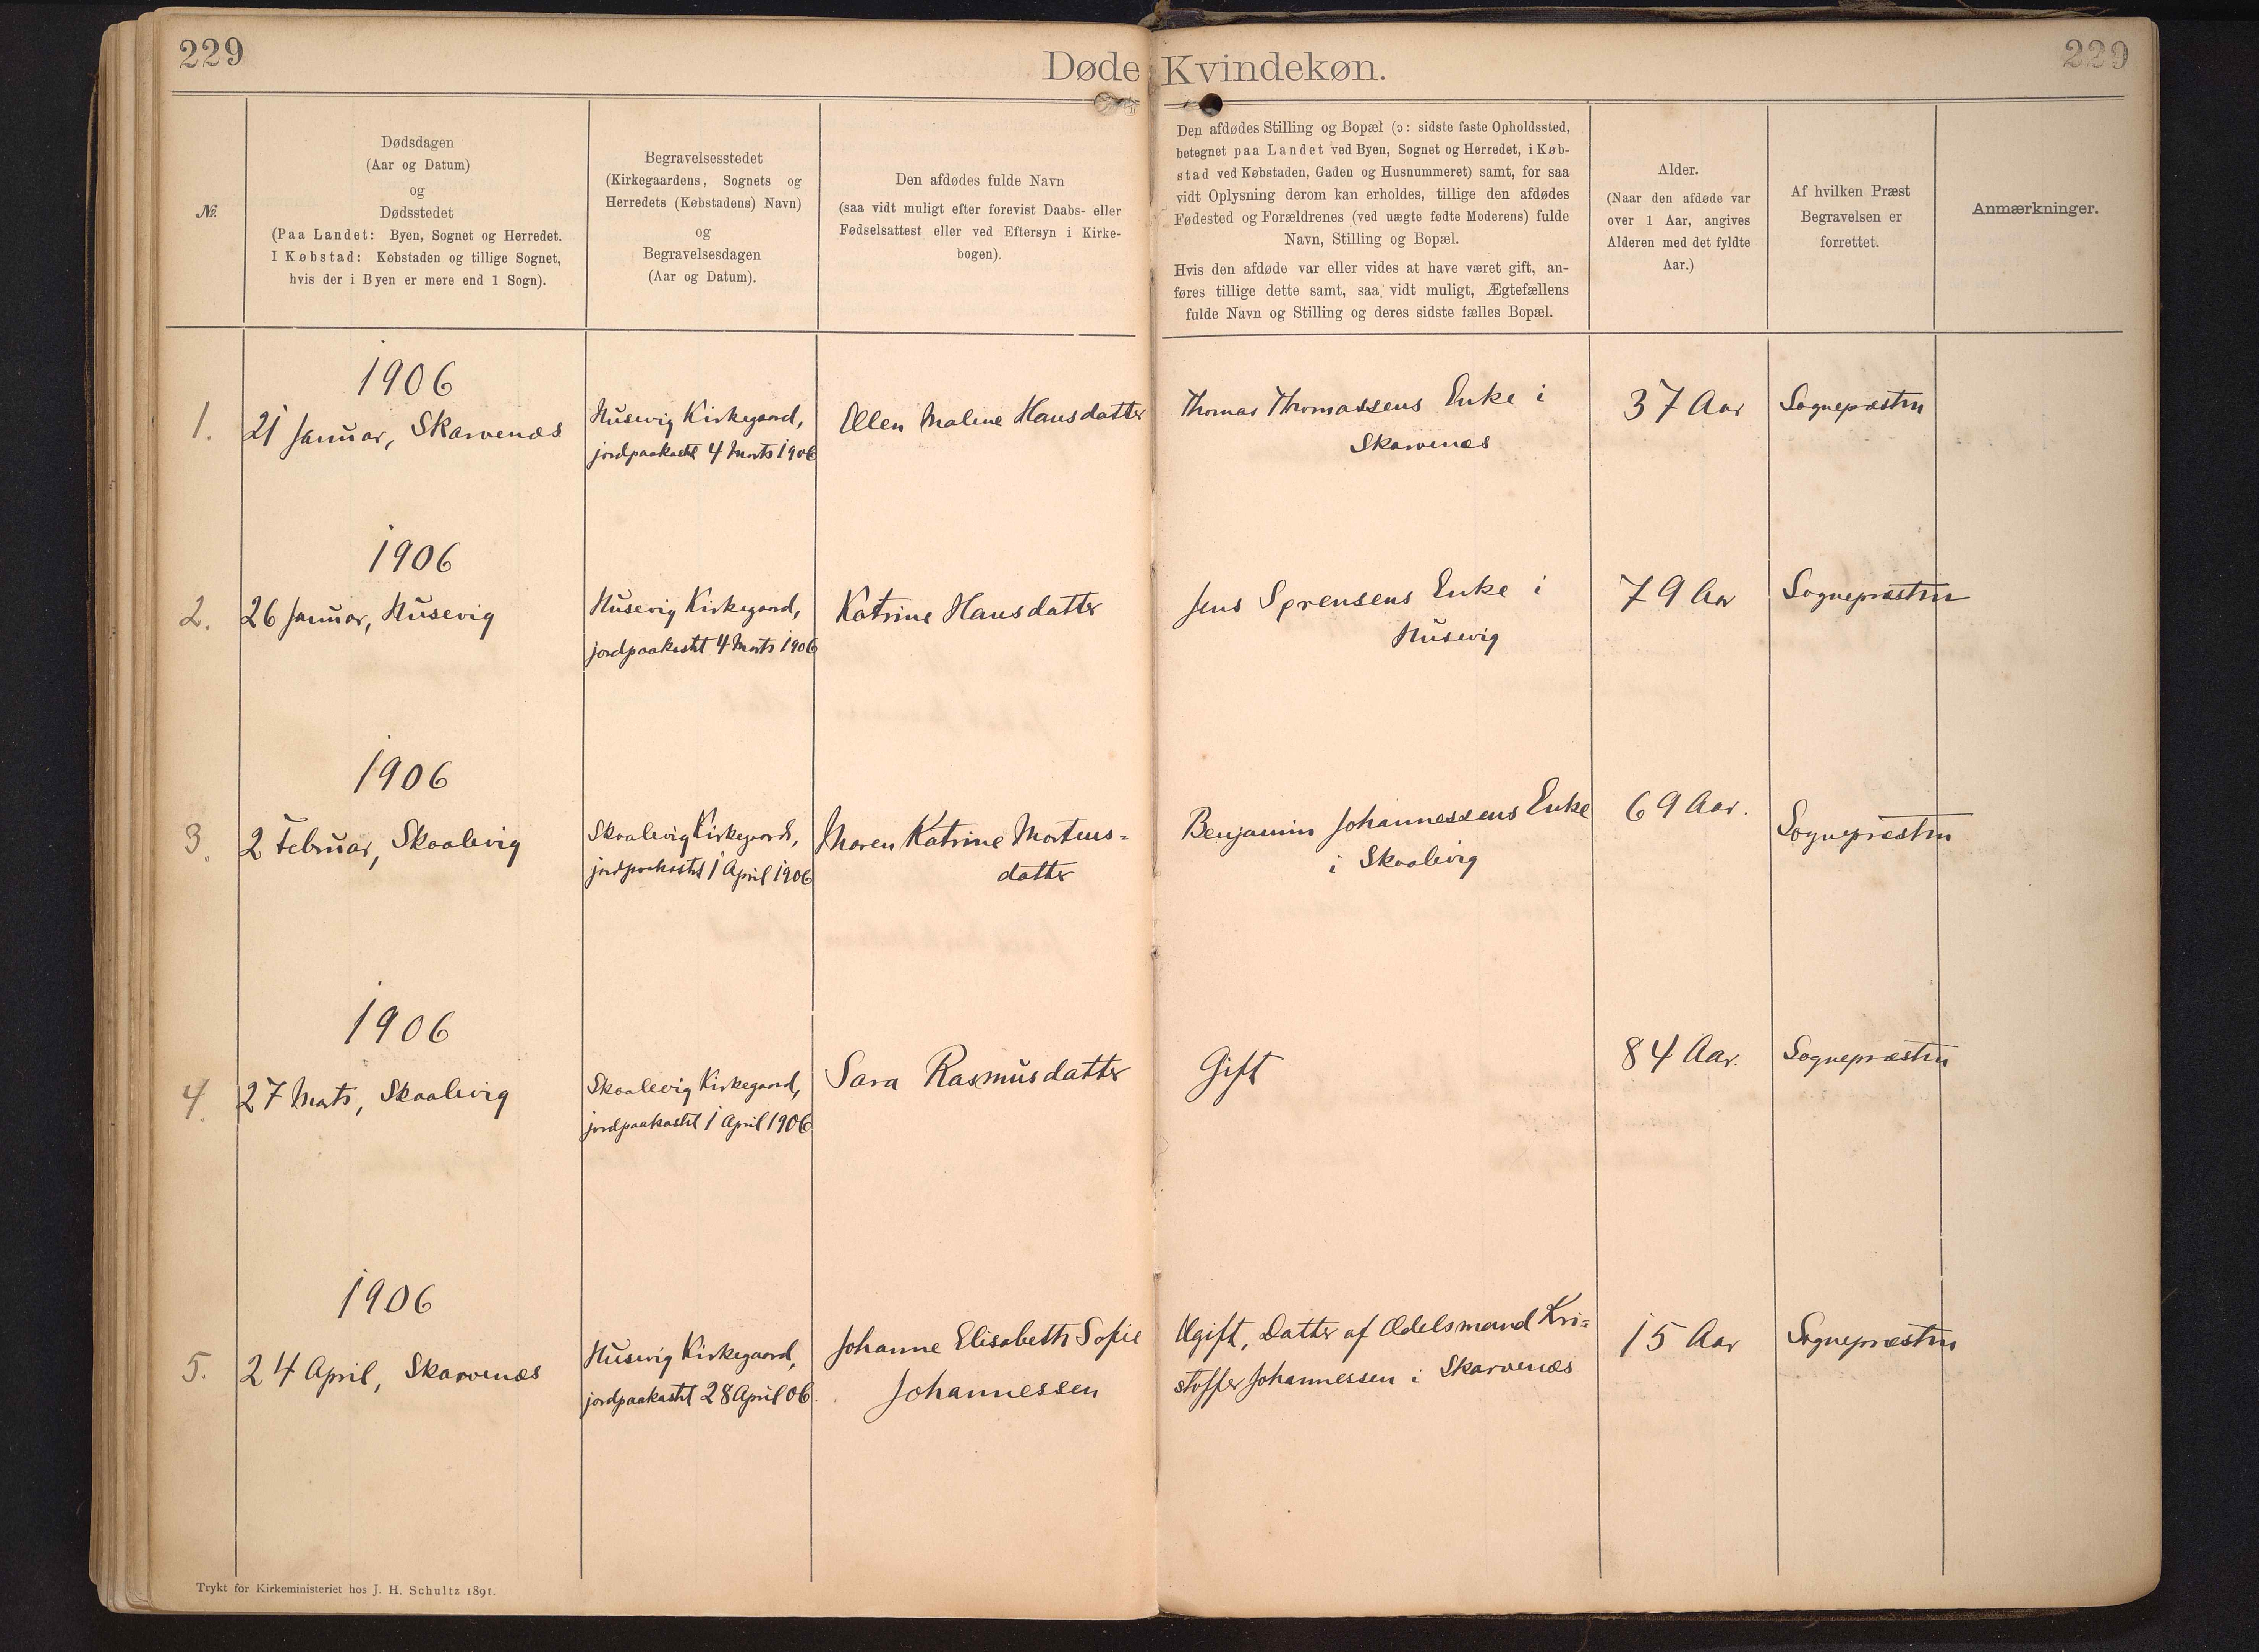 229
Døde Kvindekøn.
229
№.
Dødsdagen
(Aar og Datum)
og
Dødsstedet
(Paa Landet: Byen, Sognet og Herredet.
I Købstad: Købstaden og tillige Sognet,
hvis der i Byen er mere end 1 Sogn).
Begravelsesstedet
(Kirkegaardens, Sognets og
Herredets (Købstadens) Navn)
og
Begravelsesdagen
(Aar og Datum).
Den afdødes fulde Navn
(saa vidt muligt efter forevist Daabs- eller
Fødselsattest eller ved Eftersyn i Kirke-
bogen).
Den afdødes Stilling og Bopæl (ɔ: sidste faste Opholdssted,
betegnet paa Landet ved Byen, Sognet og Herredet, i Køb-
stad ved Købstaden, Gaden og Husnummeret) samt, for saa
vidt Oplysning derom kan erholdes, tillige den afdødes
Fødested og Forældrenes (ved uægte fødte Moderens) fulde
Navn, Stilling og Bopæl.
Hvis den afdøde var eller vides at have været gift, an-
føres tillige dette samt, saa vidt muligt, Ægtefællens
fulde Navn og Stilling og deres sidste fælles Bopæl.
Alder.
(Naar den afdøde var
over 1 Aar, angives
Alderen med det fyldte
Aar.)
Af hvilken Præst
Begravelsen er
forrettet.
Anmærkninger.
1906
1.
21 Januar, Skarvenæs
Husevig Kirkegaard,
jordpaakastet 4 Marts 1906
Ellen Malene Hansdatter
Thomas Thomassens Enke i
Skarvenæs
37 Aar
Sognepræsten
1906
2.
26 Januar, Husevig
Husevig Kirkegaard,
jordpaakastet 4 Marts 1906
Katrine Hansdatter
Jens Sørensens Enke i
Husevig
79 Aar
Sognepræsten
1906
3.
2 Februar, Skaalevig
Skaalevig Kirkegaard,
jordpaakastet 1 April 1906
Maren Katrine Mortens-
datter
Benjamin Johannessens Enke
i Skaalevig
69 Aar.
Sognepræsten
1906
4.
27 Marts, Skaalevig
Skaalevig Kirkegaard,
jordpaakastet 1 April 1906
Sara Rasmusdatter
Gift
84 Aar.
Sognepræsten
1906
5.
24 April, Skarvenæs
Husevig Kirkegaard,
jordpaakastet 28 April 06.
Johanne Elisabeth Sofie
Johannessen
Ugift, Datter af Odelsmand Kri-
stoffer Johannessen i Skarvenæs
15 Aar
Sognepræsten
Trykt for Kirkeministeriet hos J. H. Schultz 1891.